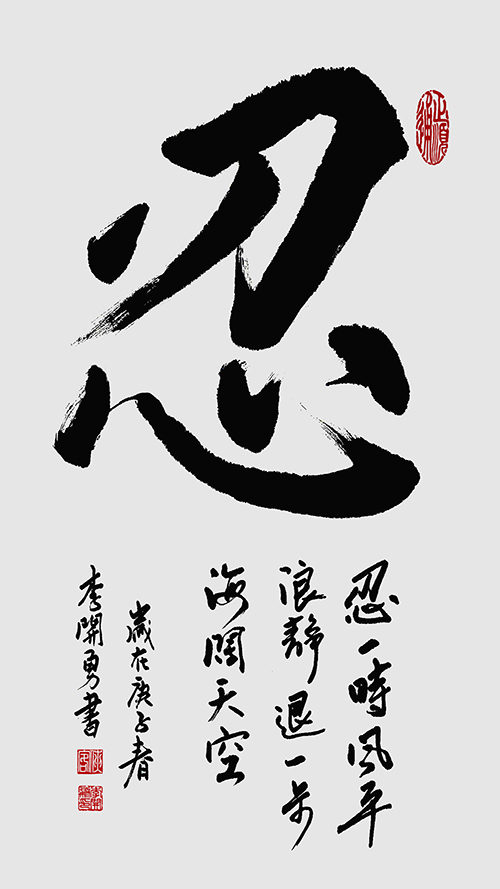 忍
忍一時風平
浪靜退一步
海闊天空
歲在庚子春
李開勇書